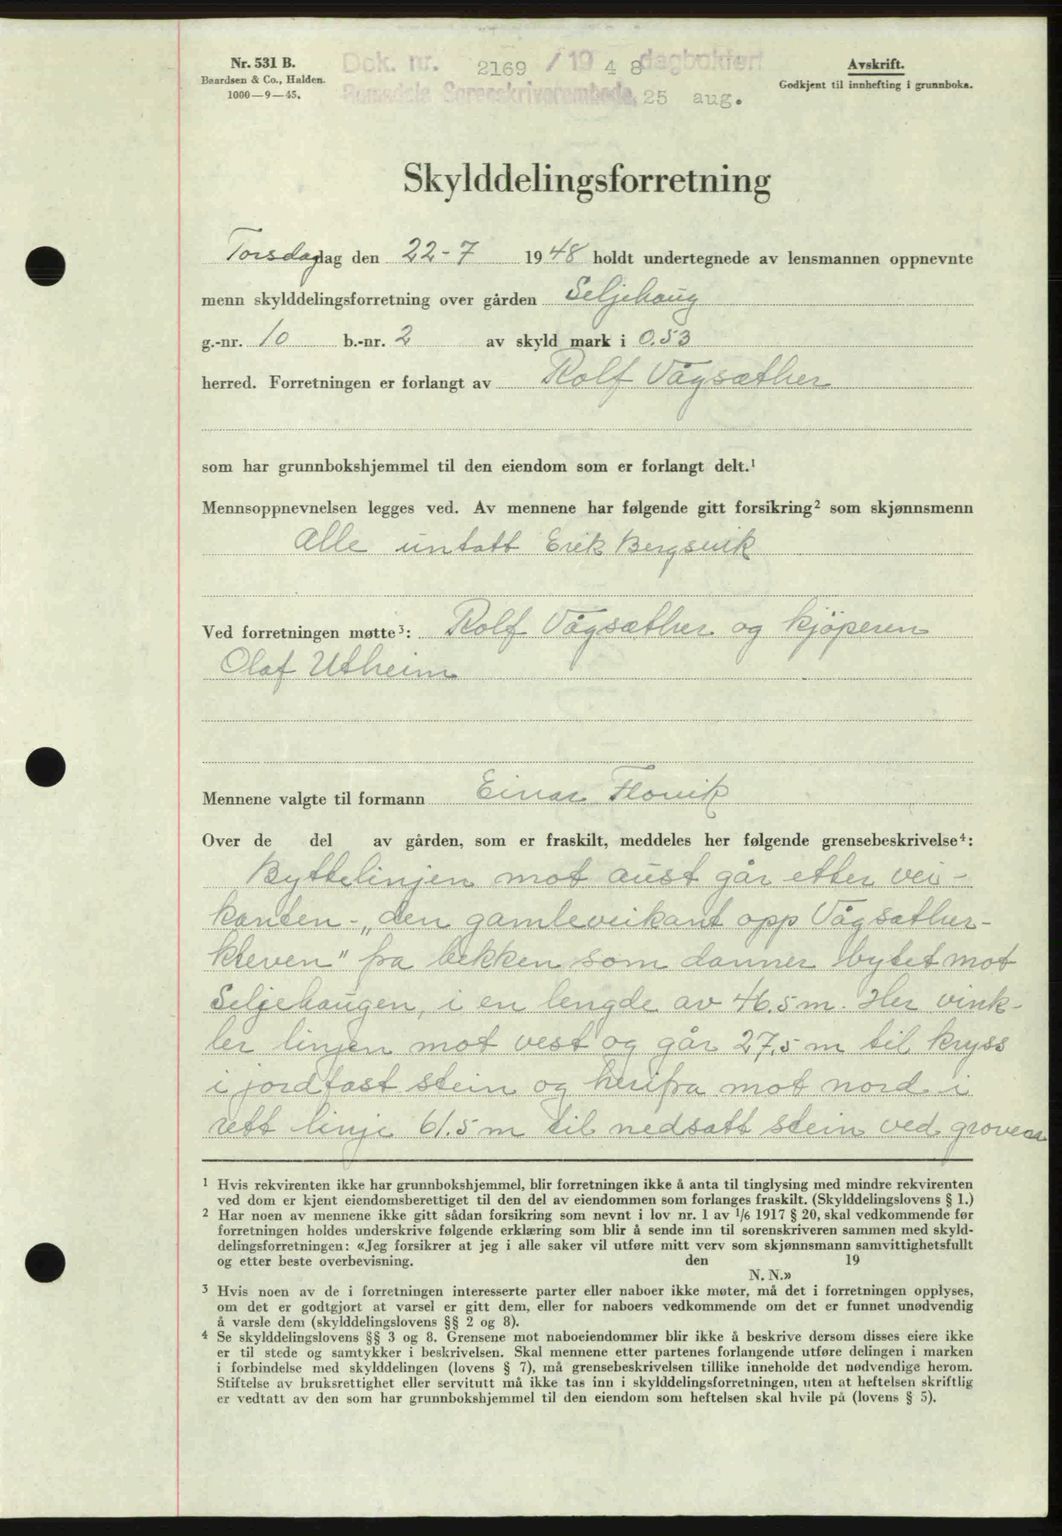 Nr. 531 B.
Baardsen & Co., Halden.
1000—9—45.
Dok. nr. 2169 / 19 48 dagbokført
Romsdals Sorenskriverembede, 25 aug.
Avskrift.
Godkjent til innhefting i grunnboka.
Skylddelingsforretning
Torsdag dag den 22-7 1948 holdt undertegnede av lensmannen oppnevnte
menn skylddelingsforretning over gården Seljehaug
g.-nr. 10 b.-nr. 2 av skyld mark i 0.53
herred. Forretningen er forlangt av Rolf Vågsæther
som har grunnbokshjemmel til den eiendom som er forlangt delt.¹
Mennsoppnevnelsen legges ved. Av mennene har følgende gitt forsikring² som skjønnsmenn
Alle untatt Erik Bergsvik
Ved forretningen møtte³: Rolf Vågsæther og kjöperen
Olaf Utheim
Mennene valgte til formann Einar Flovik
Over de del av gården, som er fraskilt, meddeles her følgende grensebeskrivelse⁴:
Byttelinjen mot aust går etter vei-
kanten - „den gamleveikant opp Vågsæther-
kleven" fra bekken som danner bytet mot
Seljehaugen, i en lengde av 46.5 m. Her vink-
ler linjen mot vest og går 27.5 m til kryss
i jordfast stein og herifra mot nord i
rett linje 61.5 m til nedsatt stein ved
¹ Hvis rekvirenten ikke har grunnbokshjemmel, blir forretningen ikke å anta til tinglysing med mindre rekvirenten
ved dom er kjent eiendomsberettiget til den del av eiendommen som forlanges fraskilt. (Skylddelingslovens § 1.)
² Har noen av mennene ikke gitt sådan forsikring som nevnt i lov nr. 1 av 1/6 1917 § 20, skal vedkommende før
forretningen holdes underskrive følgende erklæring som blir å sende inn til sorenskriveren sammen med skyld-
delingsforretningen: «Jeg forsikrer at jeg i alle saker vil utføre mitt verv som skjønnsmann samvittighetsfullt
og etter beste overbevisning. den 19
N. N.»
³ Hvis noen av de i forretningen interesserte parter eller naboer ikke møter, må det i forretningen opplyses,
om det er godtgjort at varsel er gitt dem, eller for naboers vedkommende om det er funnet unødvendig
å varsle dem (skylddelingslovens §§ 2 og 8).
⁴ Se skylddelingslovens §§ 3 og 8. Grensene mot naboeiendommer blir ikke å beskrive dersom disses eiere ikke
er til stede og samtykker i beskrivelsen. Skal mennene etter partenes forlangende utføre delingen i marken
i forbindelse med skylddelingen (lovens § 7), må grensebeskrivelsen tillike inneholde det nødvendige herom.
Stiftelse av bruksrettighet eller servitutt må ikke tas inn i skylddelingsforretningen, uten at heftelsen skriftlig
er vedtatt av den som har grunnbokshjemmel til den eiendom som heftelsen skal hvile på (lovens § 5).